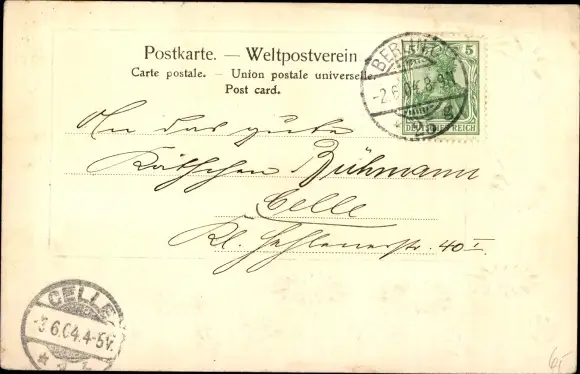 Postkarte. — Weltpostverein
Carte postale. — Union postale universelle.
Post card.
BERLIN, C.
-2.6.04.8-9N.
5
DEUTSCHES REICH
An das gute
Käthchen Bühmann
Celle
Kl. Hehlenerstr. 40 I.
CELLE
-3.6.04.4-5V.